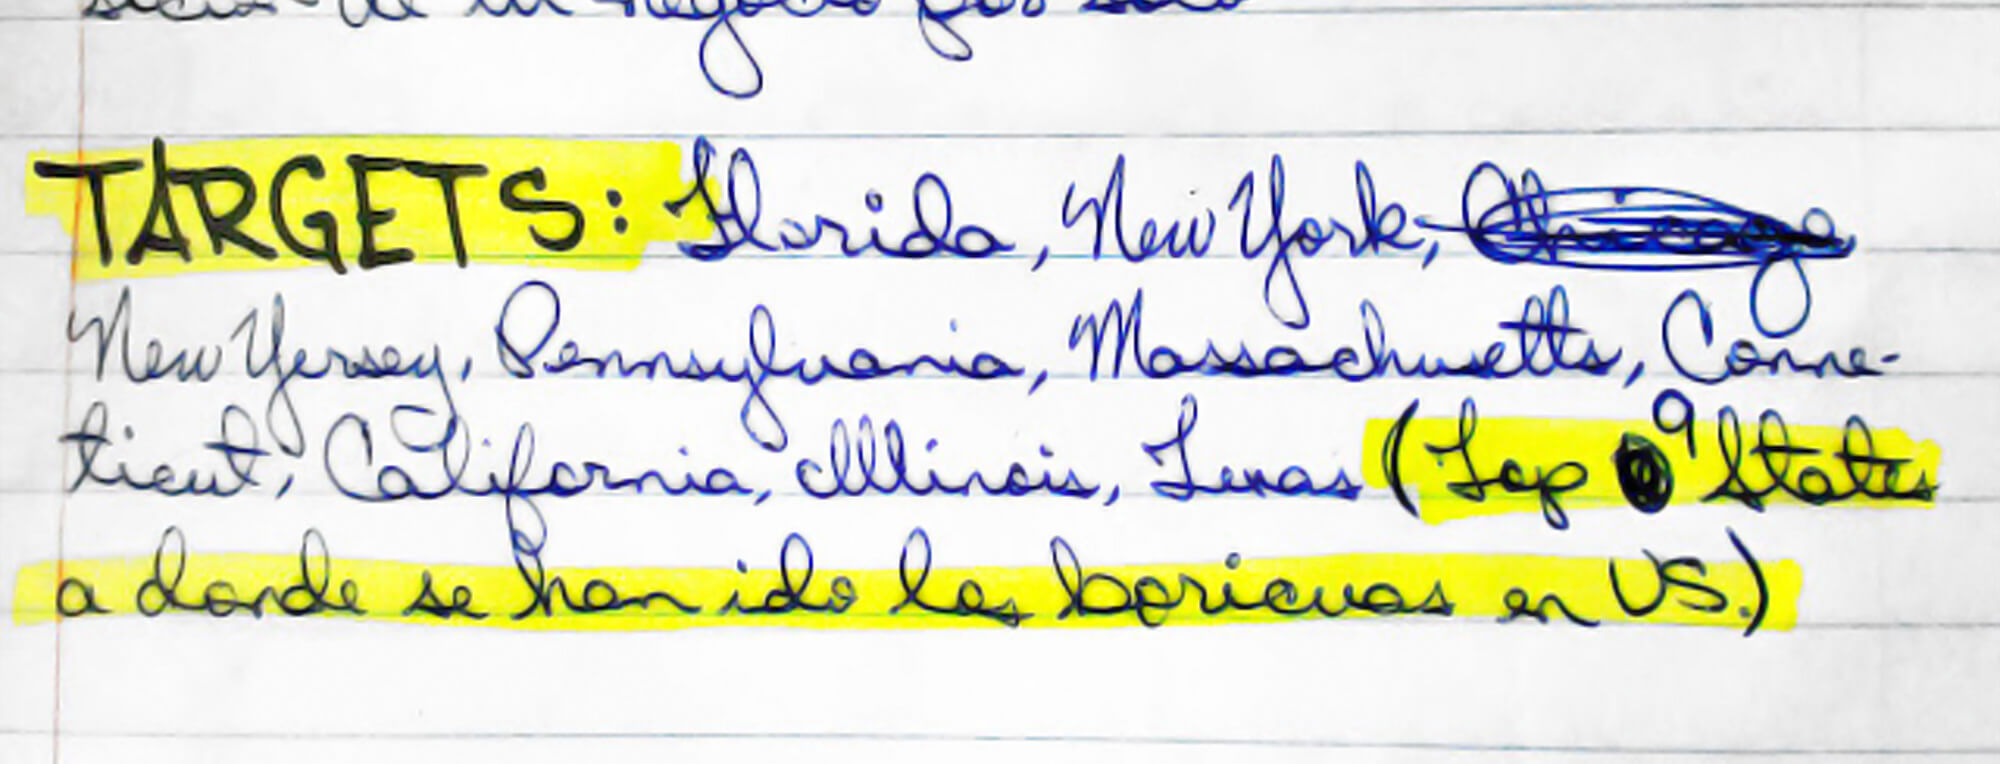 de tu negocio por solo
TARGETS: Florida, New York, Chicago
New Yersey, Pennsylvania, Massachusetts, Conne-
ticut, California, Illinois, Texas (Top 9 States
a donde se han ido los boricuas en US.)